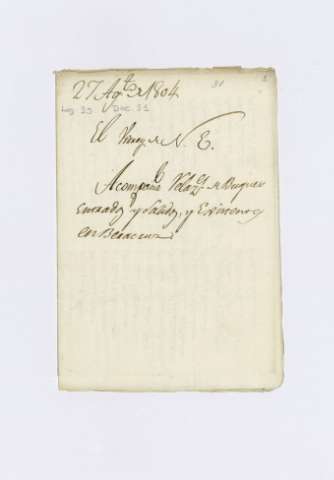 27 Agto de 1804
31
Leg 25 Doc. 31
El Virrey de N. E.
Acompaña Relacs de Buques
entrados y salidos, y Existentes
en Veracruz